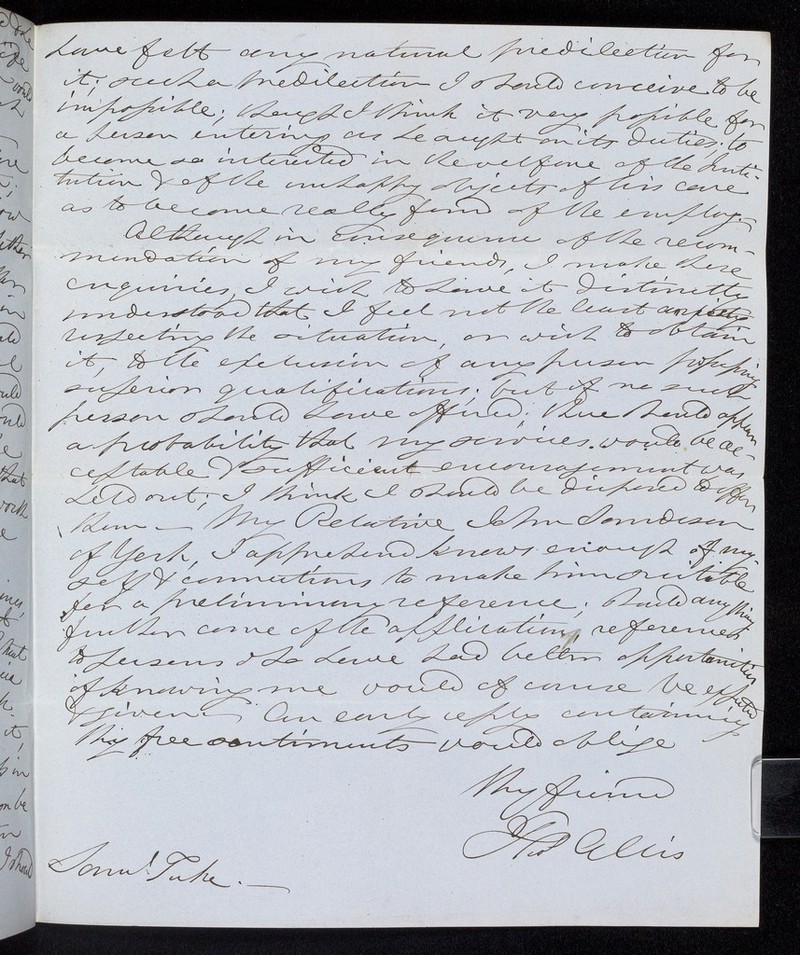 have felt any natural predilection for
it; such a predilection I should conceive to be
impossible; though I think it very possible for
a person entering as he ought on its duties, to
become so interested in the welfare of the Insti-
tution & of the unhappy objects of his care
as to become really fond of the employ.—
Although in consequence of the recom-
mendation of my friends, I make these
enquiries, I wish to have it distinctly
understood that I feel not the least anxiety
respecting the situation, or wish to obtain
it, to the exclusion of any person possessing
superior qualifications; but if no such
person should have offered; & there should appear
a probability that my services would be ac-
ceptable & sufficient encouragement was
held out; I think I should be disposed to offer
them — My Relative John
of York, I apprehend knows enough of my-
self & connections to make him suitable
for a preliminary reference; should any thing
further come of the application, references
to persons who have had better opportunities
of knowing me would of course be expected
& given — An early reply containing
thy free sentiments would oblige
Thy friend
Thos Allis
Saml. Tuke. —